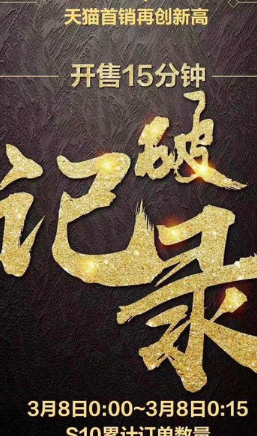 天猫首销再创新高
开售15分钟
破
记录
3月8日0:00~3月8日0:15
S10累计订单数量